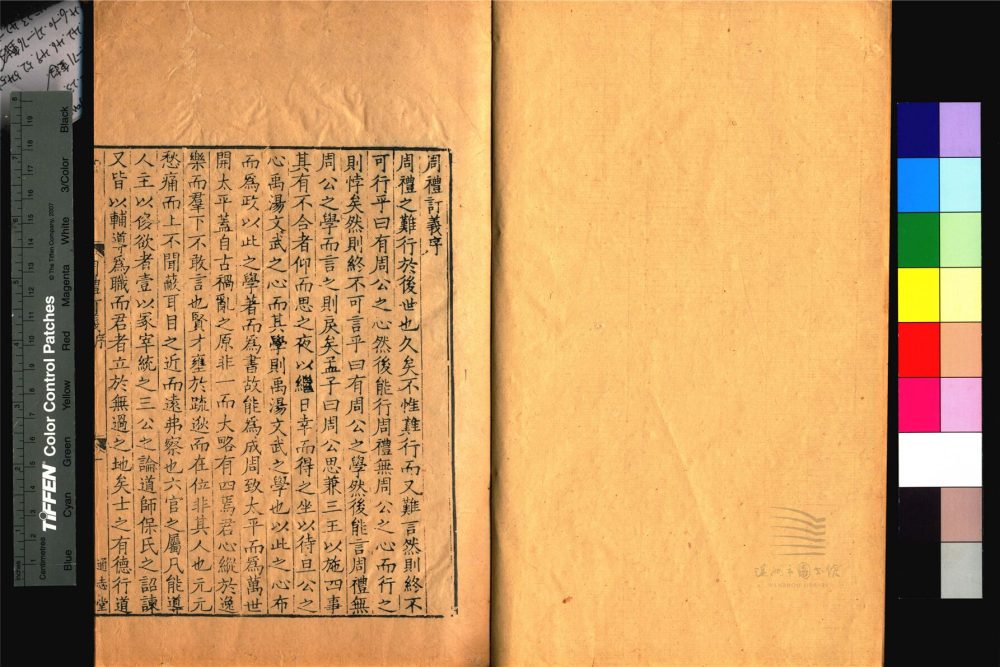 周禮訂義序
周禮之難行於後世也久矣不惟難行而又難言然則終不
可行乎曰有周公之心然後能行周禮無周公之心而行之
則悖矣然則終不可言乎曰有周公之學然後能言周禮無
周公之學而言之則戾矣孟子曰周公思兼三王以施四事
其有不合者仰而思之夜以繼日幸而得之坐以待旦公之
心禹湯文武之心而其學則禹湯文武之學也以此之心布
而爲政以此之學著而爲書故能爲成周致太平而爲萬世
開太平蓋自古禍亂之原非一而大略有四焉君心縱於逸
樂而羣下不敢言也賢才壅於疏逖而在位非其人也元元
愁痛而上不聞蔽耳目之近而遠弗察也六官之屬凡能導
人主以侈欲者壹以冢宰統之三公之論道師保氏之詔諫
又皆以輔導爲職而君者立於無過之地矣士之有德行道
周禮訂義序
一
通志堂
Inches
Centimetres
TIFFEN Color Control Patches
© The Tiffen Company, 2007
Blue
Cyan
Green
Yellow
Red
Magenta
White
3/Color
Black
溫州市圖書館
WENZHOU LIBRARY